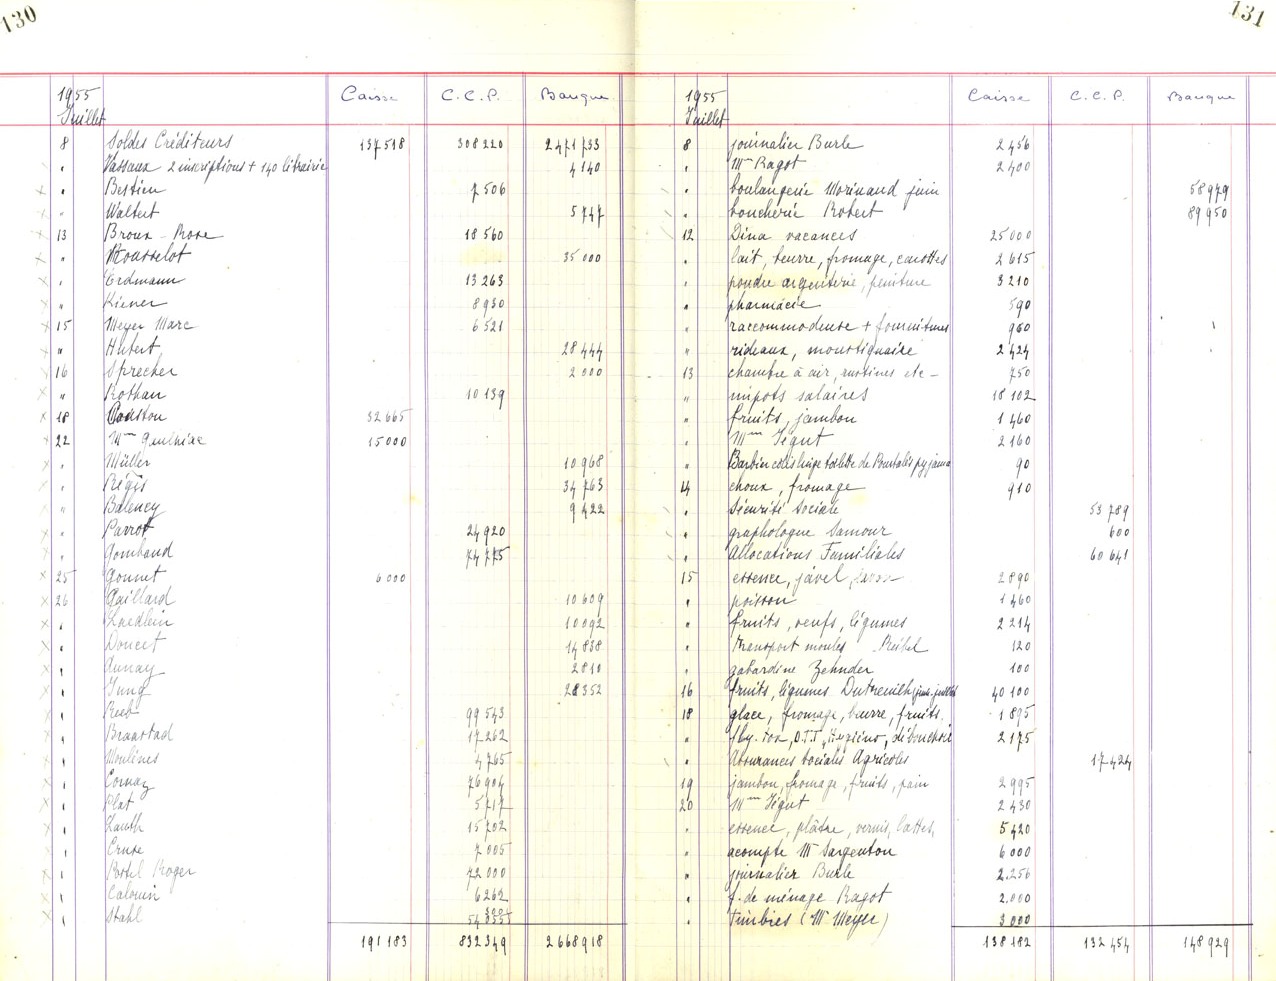 130
1955 Juillet Caisse C.C.P. Banque
8 Soldes Créditeurs 137518 308220 2471733
" Vassaux 2 inscriptions + 140 librairie 4140
" Bestien 7506
" Waltert 5747
13 Broux - Rose 18560
" Rousselot 35000
" Erdmann 13263
" Kiener 8930
15 Meyer Marc 6521
" Hubert 28444
16 Sprecher 2000
" Rothan 10139
18 32665
22 Mme Gaulhiac 15000
" Müller 10968
" Régis 34763
" Balency 9422
" Parrot 24920
" Gombaud 74775
25 Gonnet 6000
26 Gaillard 10609
" 10092
" Doucet 14838
" Aunay 2810
" Jung 28352
" Rieb 99543
" Braastad 17262
" Moulines 4765
" Cornay 76904
" Plat 5717
" Lauth 15702
" Cruse 7005
" Postel Roger 72000
" Calouin 6262
" Stahl
191183 832349 2668918
131
1955 Juillet Caisse C.C.P. Banque
8 journalier Burle 2456
" Mme Ragot 2400
" boulangerie Morinaud juin 58979
" boucherie Robert 89950
12 Dina vacances 25000
" lait, beurre, fromage, carottes 2615
" poudre argenterie, peinture 3210
" pharmacie 590
" raccommodeuse + fournitures 960
" rideaux, moustiquaire 2424
13 chambre à air, rustines etc - 750
" impots salaires 18102
" fruits, jambon 1460
" Mme Ségut 2160
" Barbin colis linge toilette de Pourtalès pyjama 90
14 choux, fromage 910
" Sécurité Sociale 53789
" graphologue Samour 600
" Allocations Familiales 60641
15 essence, javel, 2890
" poisson 1460
" fruits, oeufs, légumes 2214
" transport moules 120
" gabardine Zehnder 100
16 fruits, légumes Dutreuilh juin-juillet 40100
18 glace, fromage, beurre, fruits 1895
" fly-tox, 2175
" Assurances Sociales Agricoles 17424
19 jambon, fromage, fruits, pain 2995
20 Mme Ségut 2430
" essence, plâtre, vernis, lattes, 5420
" acompte Mr Sargenton 6000
" journalier Burle 2.256
" f. de ménage Ragot 2.000
" timbres (Mr Meyer) 3000
138182 132454 148929